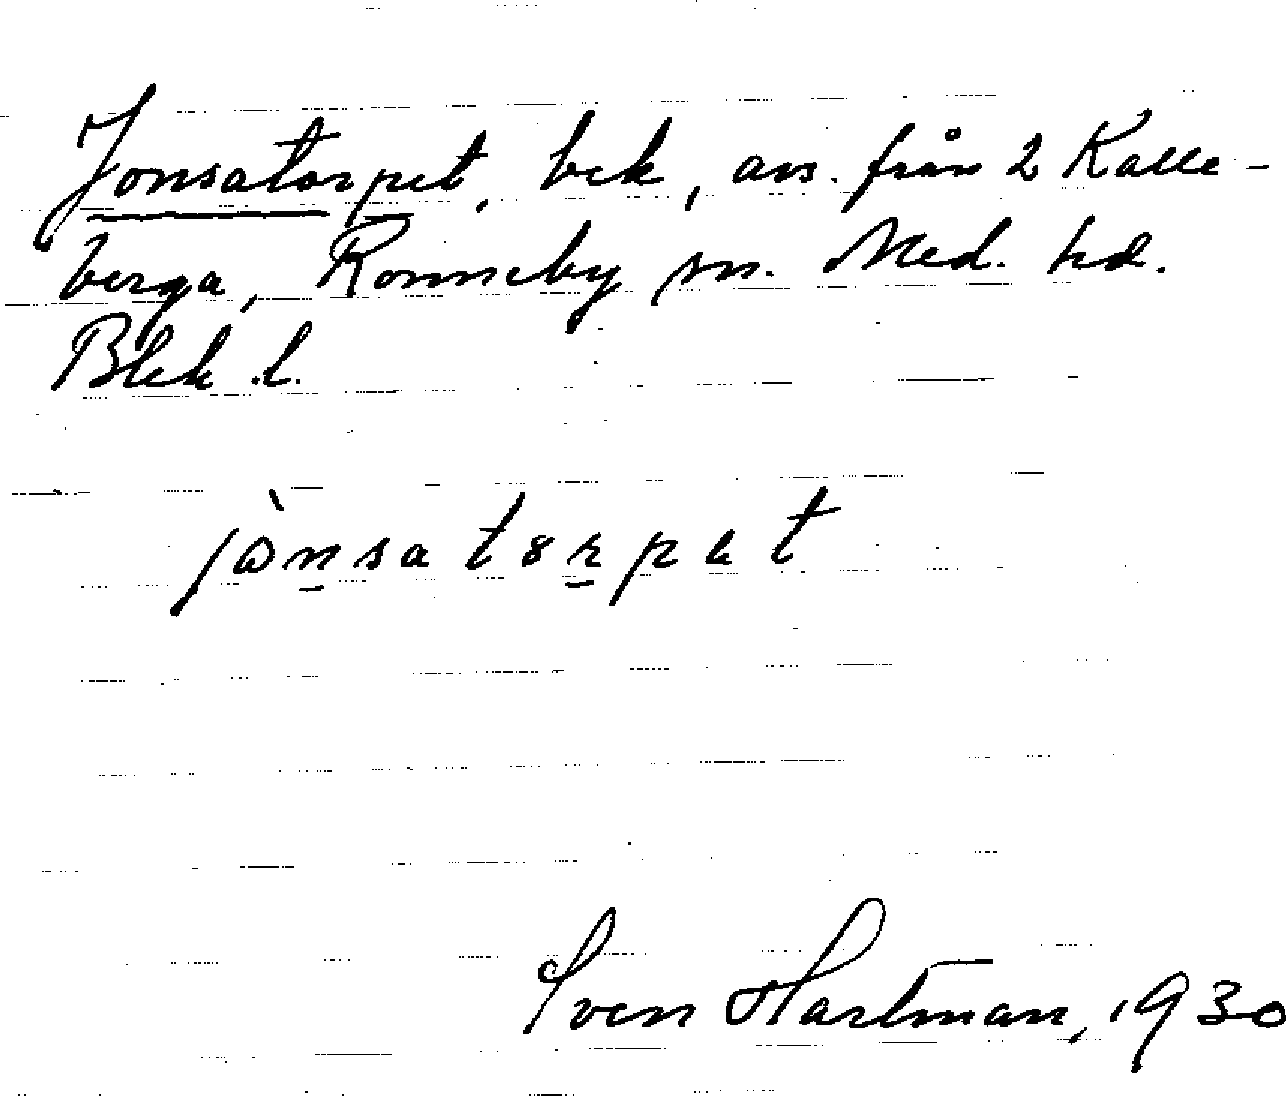 Jonsatorpet, bek, avs. från 2 Kalle-
berga, Ronneby sn. Med. hd.
Blek. l.
jònsatorpet
Sven Hartman, 1930